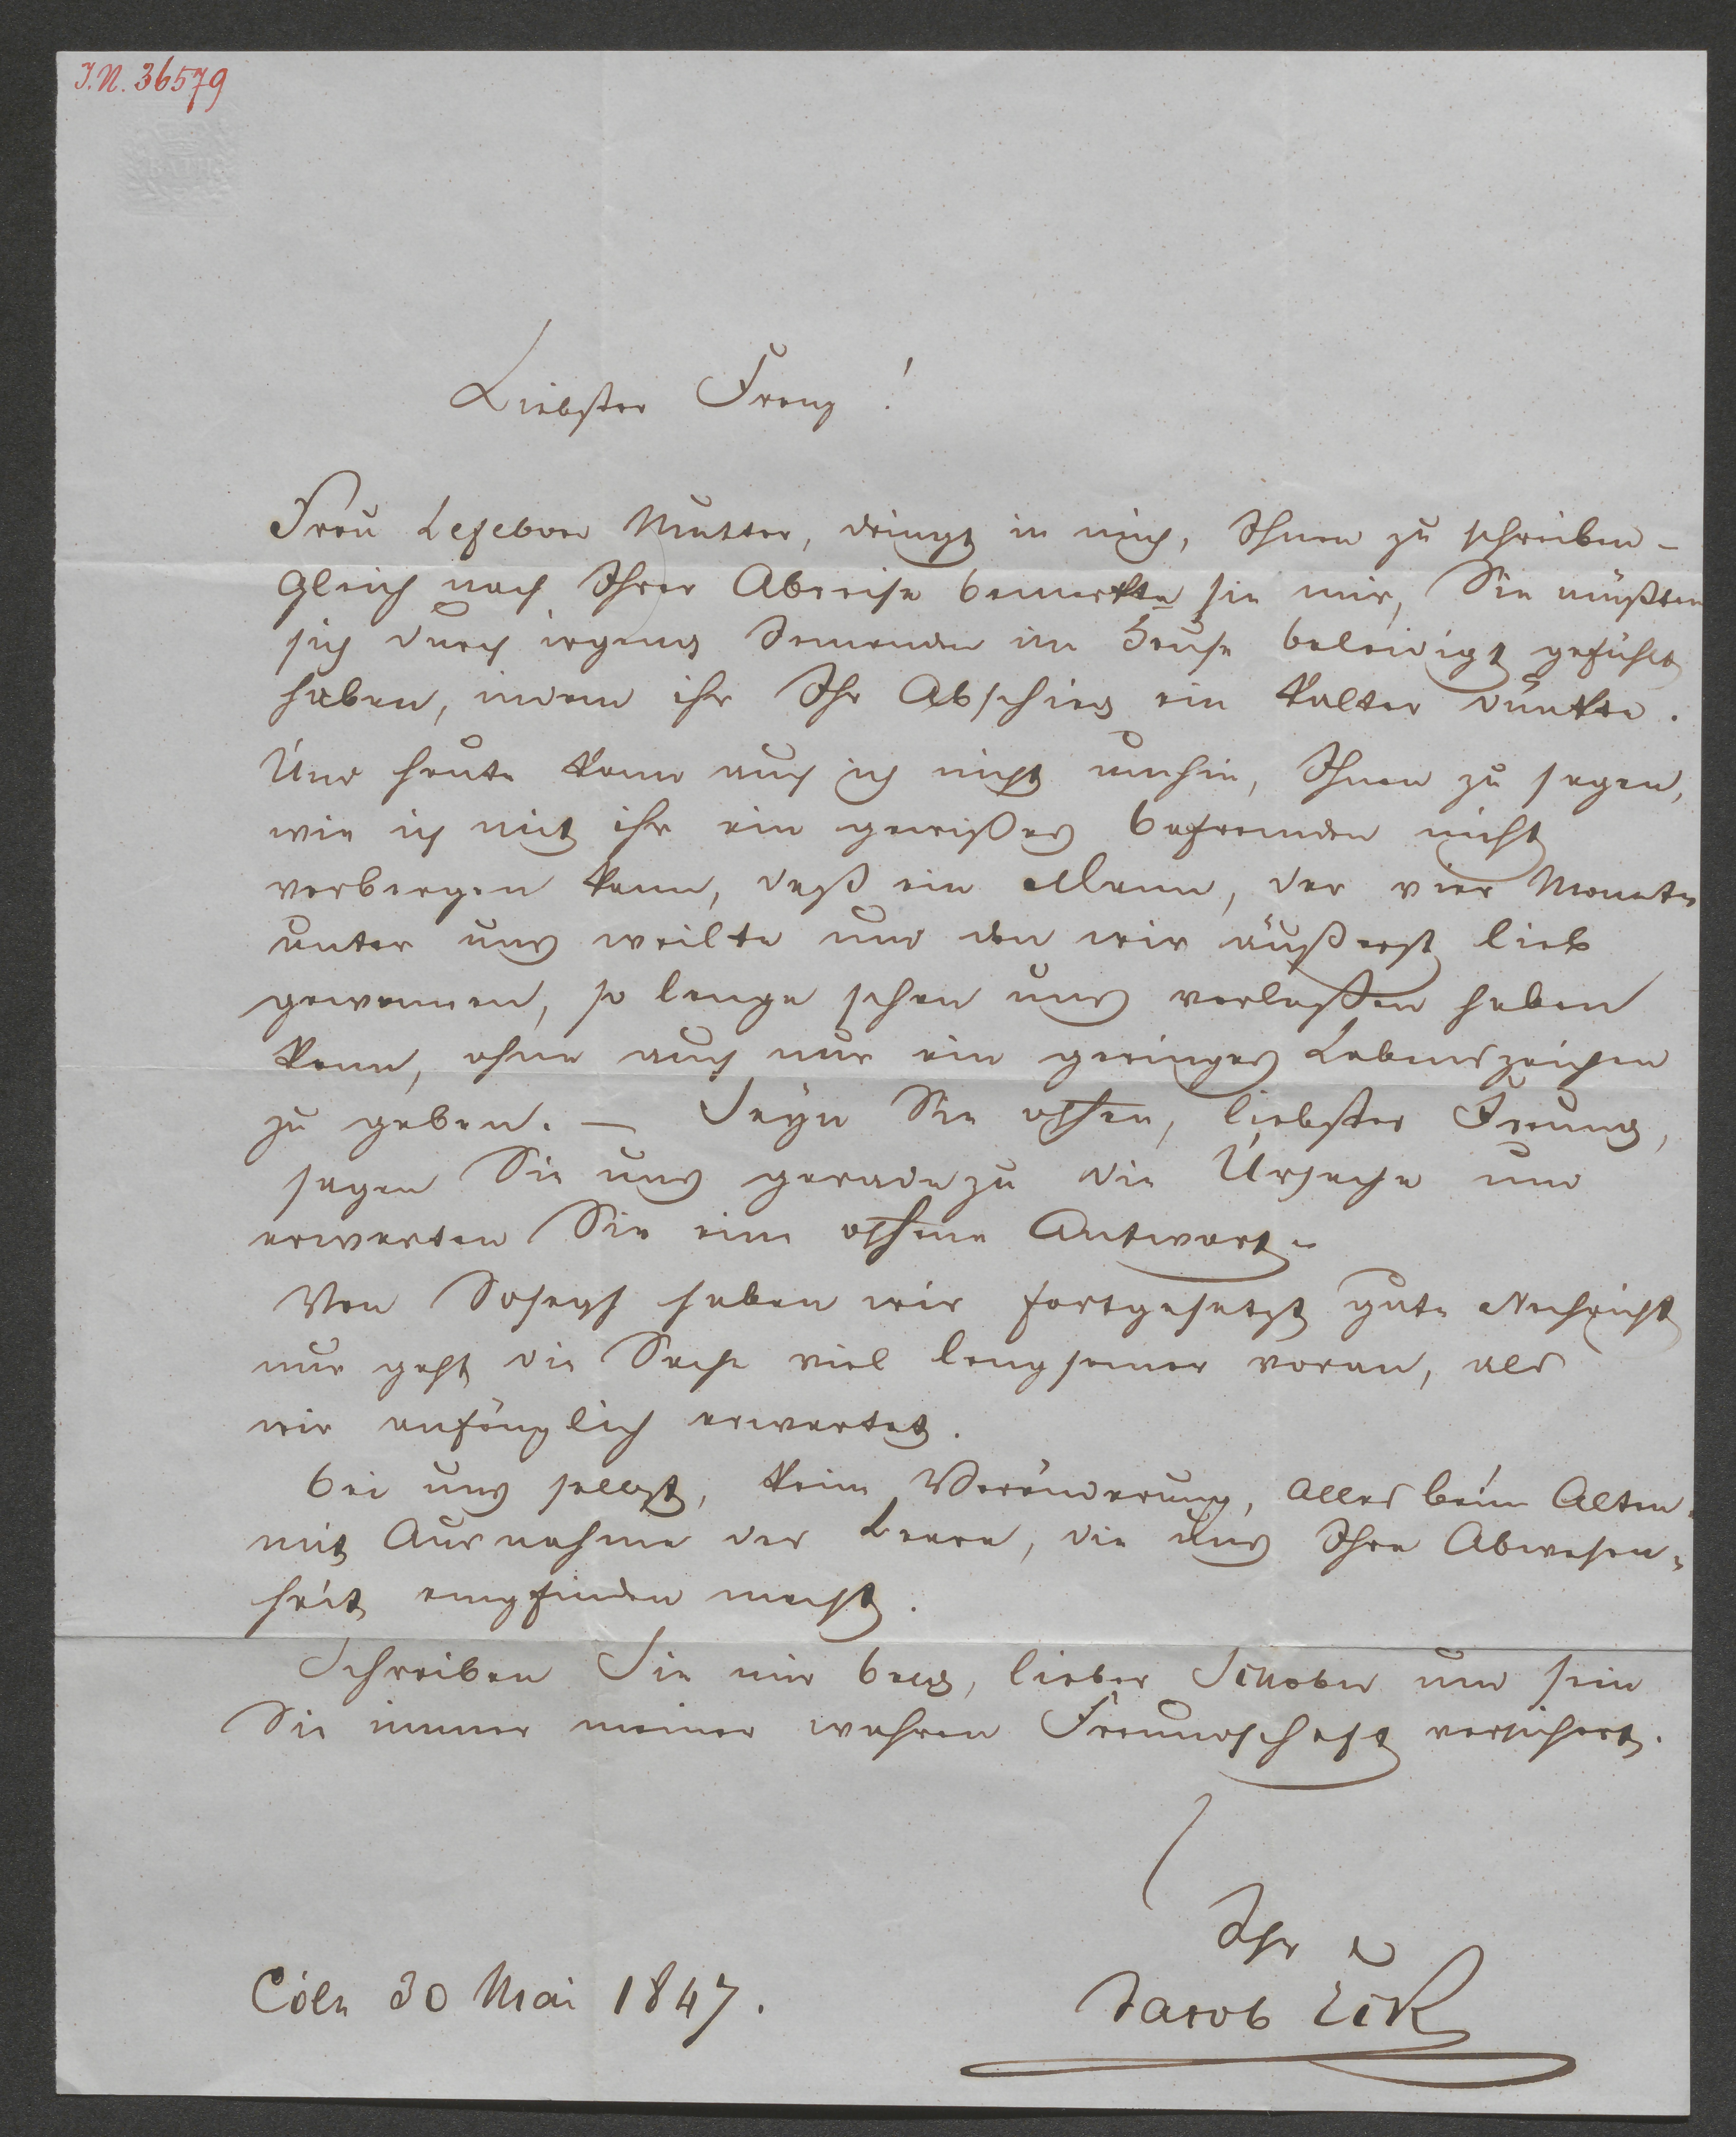 I.N. 36579
BATH
Liebster Franz!
Frau Lefebvre Mutter, dringt in mich, Ihnen zu schreiben –
Gleich nach Ihrer Abreise bemerkte sie mir, Sie müßten
sich durch irgend Jemanden im Hause beleidigt gefühlt
haben, indem ihr Ihr Abschied ein kalter dünkte.
Und heute kann auch ich nicht umhin, Ihnen zu sagen,
wie ich mit ihr ein gewißes Befremden nicht
verbergen kann, daß ein Mann, der vier Monate
unter uns weilte und den wir äußerst lieb
gewannen, so lange schon uns verlaßen haben
kann, ohne auch nur ein geringes Lebenszeichen
zu geben. – Seyn Sie offen, liebster Freund,
sagen Sie uns geradezu die Ursache und
erwarten Sie eine offene Antwort.
Von Joseph haben wir fortgesetzt gute Nachricht
nur geht die Sache viel langsamer voran, als
wir anfänglich erwartet.
Bei uns selbst, keine Veränderung, Alles beim Alten.
mit Ausnahme der Leere, die uns Ihre Abwesen=
heit empfinden macht.
Schreiben Sie mir bald, lieber Schober und sein
Sie immer meiner wahren Freundschaft versichert.
Ihr
Cöln 30 Mai 1847.
Jacob Eck